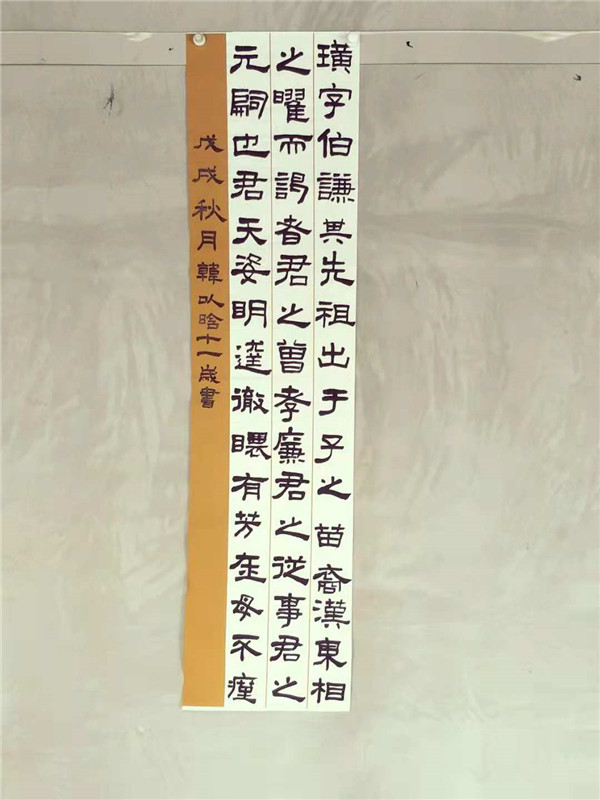 璜字伯謙其先祖出于子之苗裔漢東相
之曜而謁者君之曽孝廉君之從事君之
元嗣也君天姿明達徹有芳在母不瘽
戊戌秋月韓以晗十一歲書